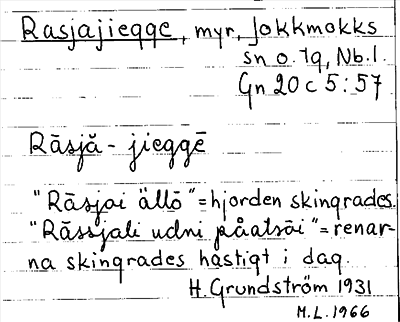 Rasjajiegge, myr, Jokkmokks
sn o. tg, Nb. l.
Gn 20 c 5:57
Rāsjă- jieggē
"Rāsjai ällō" = hjorden skingrades.
"Rāssjali udni påatsāi" = renar-
na skingrades hastigt i dag.
H. Grundström 1931
M.L. 1966